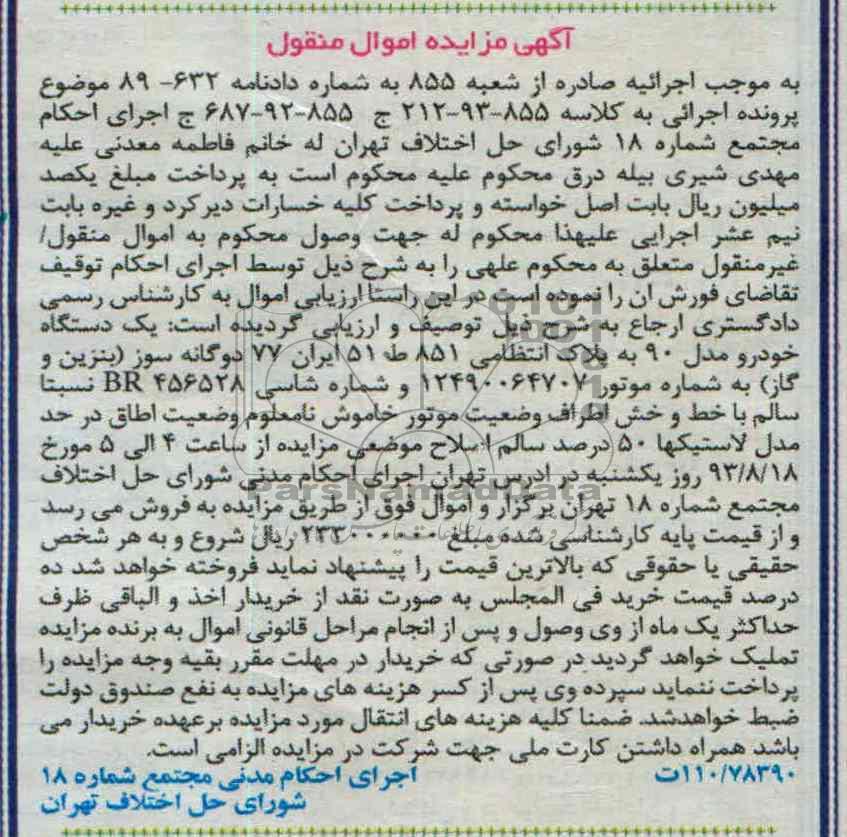 آگهی مزایده اموال منقول
به موجب اجرائیه صادره از شعبه ۸۵۵ به شماره دادنامه ۶۳۲- ۸۹ موضوع
پرونده اجرائی به کلاسه ۸۵۵-۹۳-۲۱۲ ج ۸۵۵-۹۲-۶۸۷ ج اجرای احکام
مجتمع شماره ۱۸ شورای حل اختلاف تهران له خانم فاطمه معدنی علیه
مهدی شیری بیله درق محکوم علیه محکوم است به پرداخت مبلغ یکصد
میلیون ریال بابت اصل خواسته و پرداخت کلیه خسارات دیرکرد و غیره بابت
نیم عشر اجرایی علیهذا محکوم له جهت وصول محکوم به اموال منقول/
غیرمنقول متعلق به محکوم علهی را به شرح ذیل توسط اجرای احکام توقیف
تقاضای فورش ان را نموده است در این راستا ارزیابی اموال به کارشناس رسمی
دادگستری ارجاع به شرح ذیل توصیف و ارزیابی گردیده است: یک دستگاه
خودرو مدل ۹۰ به پلاک انتظامی ۸۵۱ ط ۵۱ ایران ۷۷ دوگانه سوز (بنزین و
گاز) به شماره موتور ۱۲۴۹۰۰۶۴۷۰۷ و شماره شاسی BR ۴۵۶۵۲۸ نسبتا
سالم با خط و خش اطراف وضعیت موتور خاموش نامعلوم وضعیت اطاق در حد
مدل لاستیکها ۵۰ درصد سالم اسلاح موضعی مزایده از ساعت ۴ الی ۵ مورخ
۹۳/۸/۱۸ روز یکشنبه در ادرس تهران اجرای احکام مدنی شورای حل اختلاف
مجتمع شماره ۱۸ تهران برگزار و اموال فوق از طریق مزایده به فروش می رسد
و از قیمت پایه کارشناسی شده مبلغ ریال شروع و به هر شخص
حقیقی یا حقوقی که بالاترین قیمت را پیشنهاد نماید فروخته خواهد شد ده
درصد قیمت خرید فی المجلس به صورت نقد از خریدار اخذ و الباقی ظرف
حداکثر یک ماه از وی وصول و پس از انجام مراحل قانونی اموال به برنده مزایده
تملیک خواهد گردید در صورتی که خریدار در مهلت مقرر بقیه وجه مزایده را
پرداخت ننماید سپرده وی پس از کسر هزینه های مزایده به نفع صندوق دولت
ضبط خواهدشد. ضمنا کلیه هزینه های انتقال مورد مزایده برعهده خریدار می
باشد همراه داشتن کارت ملی جهت شرکت در مزایده الزامی است.
۱۱۰/۷۸۳۹۰ت اجرای احکام مدنی مجتمع شماره ۱۸
شورای حل اختلاف تهران
ParsNamadData